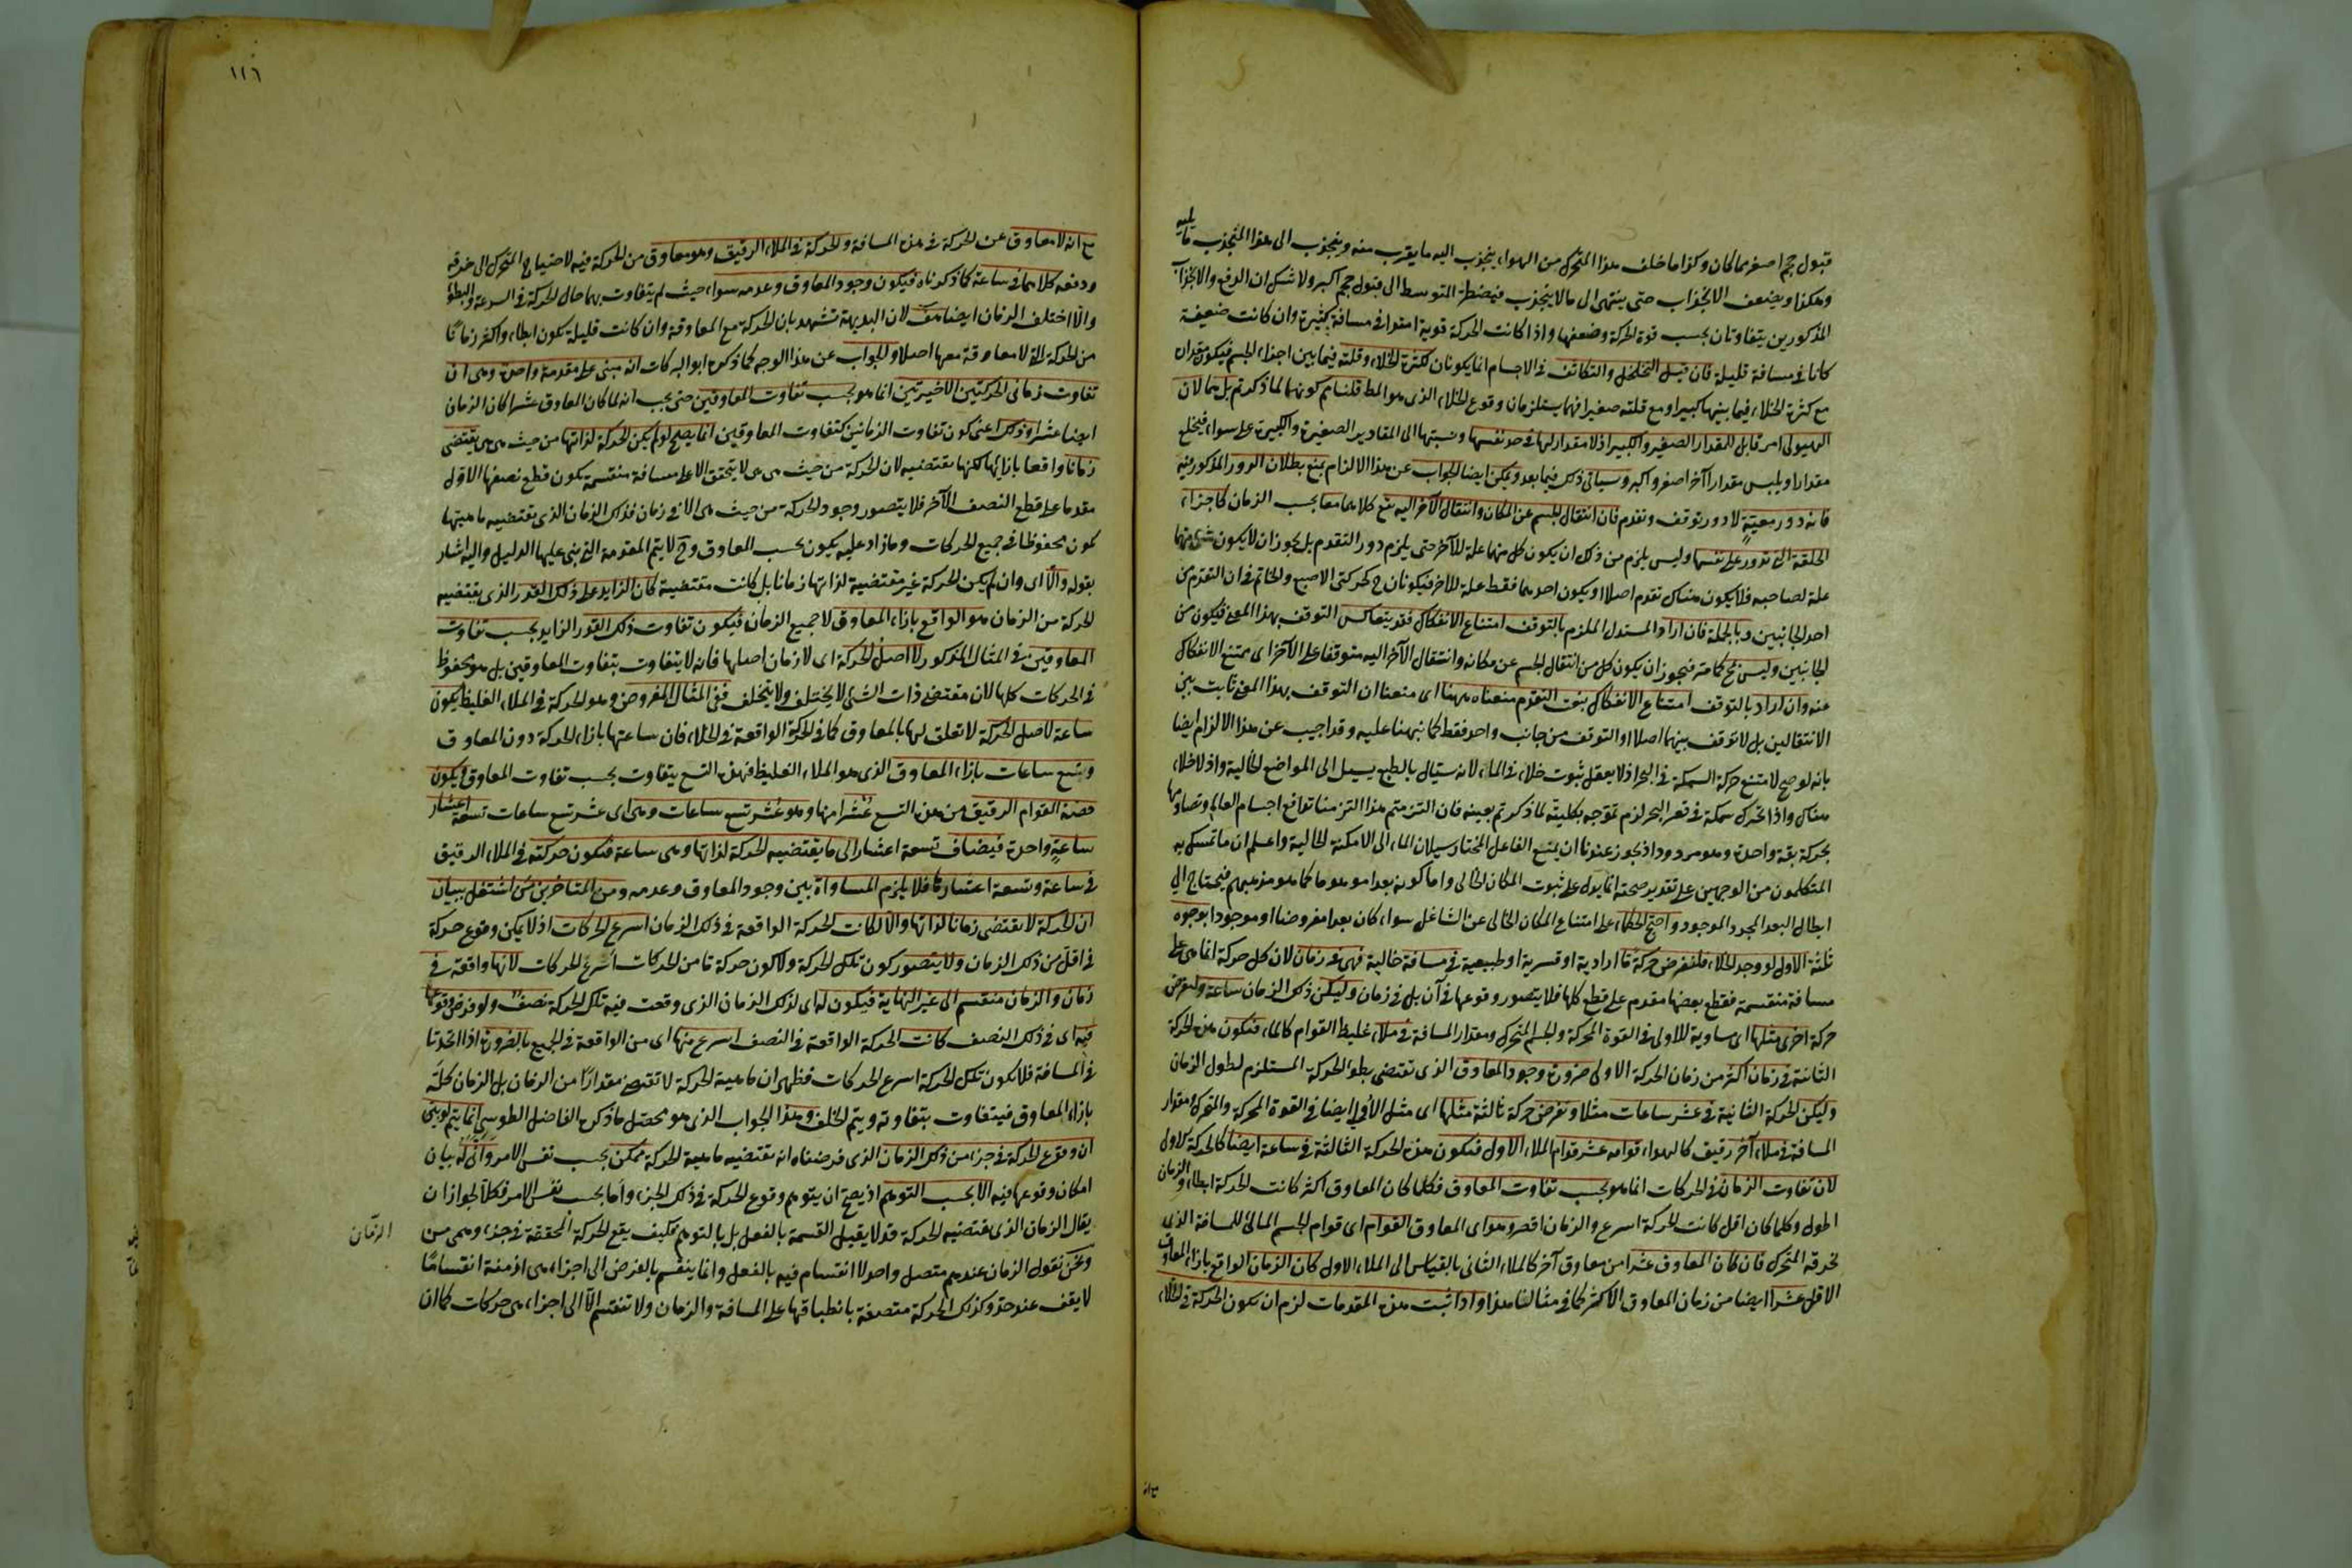 قبول حجم اصغر مما كان وكذا ما خلف هذا المتحرك من الهواء ينجذب اليه ما يقرب منه وينجذب الى هذا المنجذب ما يليه
وهكذا ويضعف الانجذاب حتى ينتهى الى ما لا ينجذب فيضطر المتوسط الى قبول حجم اكبر ولا شك ان الدفع والانجذاب
المذكورين يتفاوتان بحسب قوة الحركة وضعفها واذا كانت الحركة قوية امتدا فى مسافة كثيرة وان كانت ضعيفة
كانا فى مسافة قليلة فان قيل التخلخل والتكاثف فى الاجسام انما يكونان لكثرة الخلاء وقلته فيما بين اجزاء الجسم فيكون مقداره
مع كثرة الخلاء فيما بينها كبيرا ومع قلته صغيرا فهما يستلزمان وقوع الخلاء الذى هو المط قلنا لم كونهما لما ذكرتم بل هما لان
الهيولى امر قابل للمقدار الصغير والكبير اذ لا مقدار لها فى حد نفسها ونسبتها الى المقادير الصغيرة والكبيرة على سواء فيخلع
مقدارا ويلبس مقدارا آخر اصغر واكبر وسياتى ذلك فيما بعد ويمكن ايضا الجواب عن هذا الالزام بمنع بطلان الدور المذكور فيه
فانه دور معية لا دور توقف وتقدم فان انتقال الجسم عن المكان وانتقال الآخر اليه يقع كلاهما معا بحسب الزمان كاجزاء
الحلقة التى تدور على نفسها وليس يلزم من ذلك ان يكون كل منهما علة للآخر حتى يلزم دور التقدم بل يجوز ان لا يكون شئ منهما
علة لصاحبه فلا يكون هناك تقدم اصلا او يكون احدهما فقط علة للاخر فيكونان ح كحركتى الاصبع والخاتم فى ان التقدم من
احد الجانبين وبالجملة فان اراد المستدل الملزم بالتوقف امتناع الانفكاك فقد يتعاكس التوقف بهذا المعنى فيكون من
الجانبين وليس بمح كما مر فيجوز ان يكون كل من انتقال الجسم عن مكانه وانتقال الآخر اليه متوقفا على الآخر اى يمتنع الانفكاك
عنه وان اراد بالتوقف امتناع الانفكاك بنعت التقدم منعناه ههنا اى منعنا ان التوقف بهذا المعنى ثابت بين
الانتقالين بل لا توقف بينهما اصلا او التوقف من جانب واحد فقط كما نبهنا عليه وقد اجيب عن هذا الالزام ايضا
بانه لو صح لامتنع حركة السمكة فى البحر اذ لا يعقل ثبوت خلاء فى الماء لانه سيال بالطبع يسيل الى المواضع الخالية واذ لا خلاء
هناك واذا تحرك سمكة فى قعر البحر لزم تموجه بكليته لما ذكرتم بعينه فان التزمتم هذا التزمنا تدافع اجسام العالم وتصادمها
بحركة بقة واحدة وهو مردود اذ يجوز عندنا ان يمنع الفاعل المختار سيلان الماء الى الامكنة الخالية واعلم ان ما تمسك به
المتكلمون من الوجهين على تقدير صحته انما يدل على ثبوت المكان الخالى واما كونه بعدا موهوما كما هو مذهبهم فيحتاج الى
ابطال البعد المجرد الموجود واحتج الحكماء على امتناع المكان الخالى عن الشاغل سواء كان بعدا مفروضا او موجودا بوجوه
ثلثة الاول لو وجد الخلاء فلنفرض حركة ما ارادية او قسرية او طبيعية فى مسافة خالية فهى فى زمان لان كل حركة انما هى على
مسافة منقسمة فقطع بعضها مقدم على قطع كلها فلا يتصور وقوعها فى آن بل فى زمان وليكن ذلك الزمان ساعة ولنفرض
حركة اخرى مثلها اى مساوية للاولى فى القوة المحركة والجسم المتحرك ومقدار المسافة فى ملاء غليظ القوام كالماء فتكون هذه الحركة
الثانية فى زمان اكثر من زمان الحركة الاولى ضرورة وجود المعاوق الذى تقتضى بطؤ الحركة المستلزم لطول الزمان
وليكن الحركة الثانية فى عشر ساعات مثلا ونفرض حركة ثالثة مثلها اى مثل الاولى ايضا فى القوة المحركة والمتحرك ومقدار
المسافة فى ملاء آخر رقيق كالهواء قوامه عشر قوام الملاء الاول فتكون هذه الحركة الثالثة فى ساعة ايضا كالحركة الاولى
لان تفاوت الزمان فى الحركات انما هو بحسب تفاوت المعاوق فكلما كان المعاوق اكثر كانت الحركة ابطاء والزمان
اطول وكلما كان اقل كانت الحركة اسرع والزمان اقصر وهو اى المعاوق القوام اى قوام الجسم المالئ للمسافة الذى
تخرقه المتحرك فان كان المعاوق عشرا من معاوق آخر كالملاء الثانى بالقياس الى الملاء الاول كان الزمان الواقع بازاء المعاوق
الاقل عشرا ايضا من زمان المعاوق الاكثر كما فى مثالنا هذا واذا ثبت هذه المقدمات لزم ان يكون الحركة فى الخلاء
مع انه
١١٦
مع انه لا معاوق عن الحركة فى هذه المسافة والحركة فى الملاء الرقيق وهو معاوق من الحركة فيه لاحتياج المتحرك الى خرقه
ودفعه كلاهما فى ساعة كما ذكرناه فيكون وجود المعاوق وعدمه سواء حيث لم يتفاوت بهما حال الحركة فى السرعة والبطؤ
والا اختلف الزمان ايضا هف لان البديهة تشهد بان الحركة مع المعاوقة وان كانت قليلة تكون ابطاء واكثر زمانا
من الحركة التى لا معاوقة معها اصلا والجواب عن هذا الوجه كما ذكره ابو البركات انه مبنى على مقدمة واحدة وهى ان
تفاوت زمانى الحركتين الاخيرتين انما هو بحسب تفاوت المعاوقين حتى يجب انه لما كان المعاوق عشرا كان الزمان
ايضا عشرا وذلك اعنى كون تفاوت الزمانين كتفاوت المعاوقين انما يصح لو لم يكن الحركة لذاتها من حيث هى هى يقتضى
زمانا واقعا بازائها لكنها تقتضيه لان الحركة من حيث هى هى لا يتحقق الا على مسافة منقسمة يكون قطع نصفها الاول
مقدما على قطع النصف الآخر فلا يتصور وجود الحركة من حيث هى الا فى زمان فذلك الزمان الذى تقتضيه ماهيتها
يكون محفوظا فى جميع الحركات وما زاد عليه يكون بحسب المعاوق وح لا يتم المقدمة التى بنى عليها الدليل واليه اشار
بقوله والا اى وان لم يكن الحركة غير مقتضية لذاتها زمانا بل كانت مقتضية كان الزايد على ذلك القدر الذى يقتضيه
الحركة من الزمان هو الواقع بازاء المعاوق لا جميع الزمان فيكون تفاوت ذلك القدر الزايد بحسب تفاوت
المعاوقين فى المثال المذكور لا اصل الحركة اى لا زمان اصلها فانه لا يتفاوت بتفاوت المعاوقين بل هو محفوظ
فى الحركات كلها لان مقتضى ذات الشئ لا يختلف ولا يتخلف ففى المثال المفروض وهو الحركة فى الملاء الغليظ يكون
ساعة لاصل الحركة لا تعلق لها بالمعاوق كما فى الحركة الواقعة فى الخلاء فان ساعتها بازاء الحركة دون المعاوق
وتسع ساعات بازاء المعاوق الذى هو الملاء الغليظ فهذه التسع يتفاوت بحسب تفاوت المعاوق فيكون
حصة القوام الرقيق من هذه التسع عشرا منها وهو عشر تسع ساعات وهى اى عشر تسع ساعات تسعة اعشار
ساعة واحدة فيضاف تسعة اعشار الى ما يقتضيه الحركة لذاتها وهى ساعة فتكون حركته فى الملاء الرقيق
فى ساعة وتسعة اعشارها فلا يلزم المساواة بين وجود المعاوق وعدمه ومن المتاخرين من اشتغل ببيان
ان الحركة لا يقتضى زمانا لذاتها والا لكانت الحركة الواقعة فى ذلك الزمان اسرع الحركات اذ لا يمكن وقوع حركة
فى اقل من ذلك الزمان ولا يتصور كون تلك الحركة ولا كون حركة ما من الحركات اسرع الحركات لانها واقعة فى
زمان والزمان منقسم الى غير النهاية فيكون له اى لذلك الزمان الذى وقعت فيه تلك الحركة نصف ولو فرض وقوعها
فيه اى فى ذلك النصف كانت الحركة الواقعة فى النصف اسرع منها اى من الواقعة فى الجميع بالضرورة اذا اتحدتا
فى المسافة فلا يكون تلك الحركة اسرع الحركات فظهر ان ماهية الحركة لا تقتضى مقدارا من الزمان بل الزمان كله
بازاء المعاوق فيتفاوت بتفاوته ويتم الخلف وهذا الجواب الذى هو محصل ما ذكره الفاضل الطوسى انما يتم لو بين
ان وقوع الحركة فى جزء من ذلك الزمان الذى فرضناه انه تقتضيه ماهية الحركة ممكن بحسب نفس الامر وانى له بيان
امكان وقوعها فيه الا بحسب التوهم اذ يصح ان يتوهم وقوع الحركة فى ذلك الجزء واما بحسب نفس الامر فكلا لجواز ان
يقال الزمان الذى يقتضيه الحركة قد لا يقبل القسمة بالفعل بل بالتوهم فكيف يقع الحركة المحققة فى جزء وهمى من
الزمان
ونحن نقول الزمان عندهم متصل واحد لا انقسام فيه بالفعل وانما ينقسم بالفرض الى اجزاء هى ازمنة انقساما
لا يقف عند حد وكذلك الحركة متصفة بانطباقها على المسافة والزمان ولا تنقسم الا الى اجزاء هى حركات كما ان